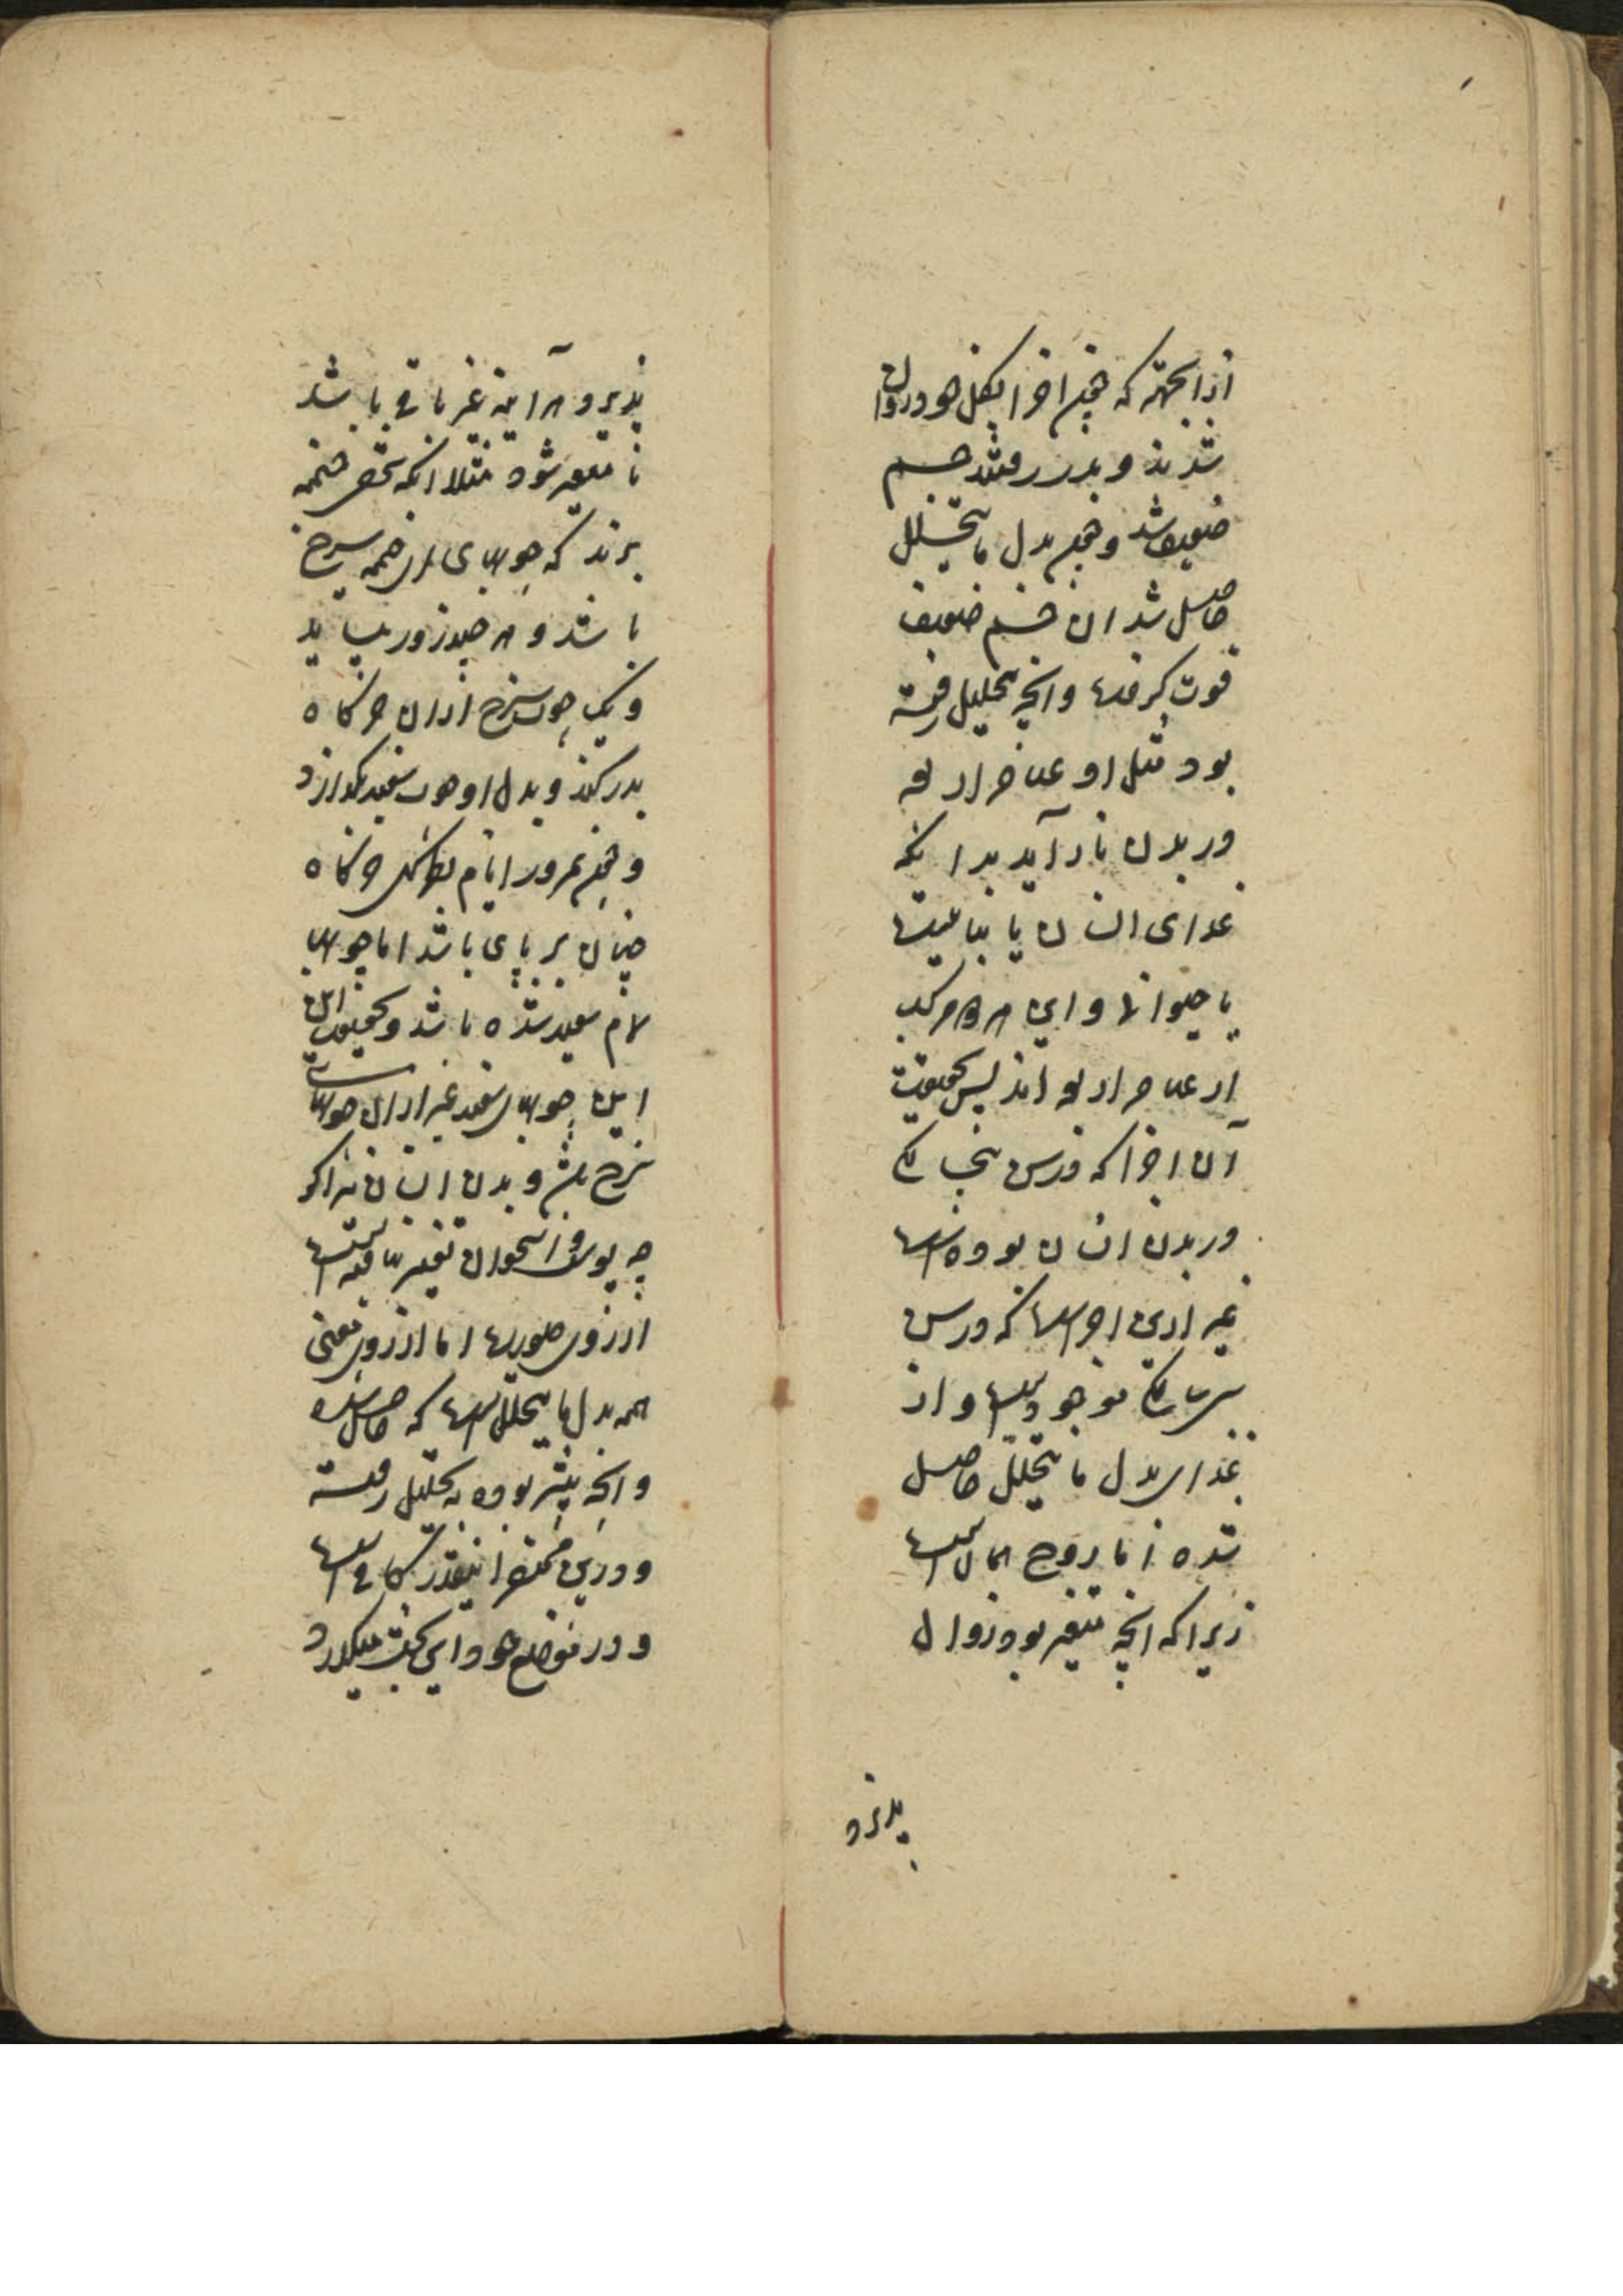 ازانجهة که همچنین اجزا بکل خود روان
شدند و بدر رفتند جسم
ضعیف شد و همچنین بدل ما یتحلل
حاصل شد ان جسم ضعیف
قوت گرفت وانچه بتحلیل رفته
بود مثل او عناصر اربعه
در بدن باز آید بدانکه
غدای انسان یا نباتیست
یا حیوانی و این هر دو مرکب
از عناصر اربعه اند پس بحقیقت
آن اجزا که در سن پنج سالگی
در بدن انسان بوده است
غیر ازین اجزاست که در سن
سی سالگی موجود است و از
غذا بدل ما یتحلل حاصل
شده اما روح همان است
زیرا که انچه متغیر بود زوال
پذیرد
پذیرد و هر آینه غیر باقی باشد
تا متغیر شود مثلا انکه شخصی خیمه
بزند که چوبهای ان خیمه سرخ
باشد و هر چند روز بیاید
و یک چوب سرخ از ان خرگاه
بدر کند و بدل او چوب سفید بگذارد
و همچنین بمرور ایام شکل خرگاه
چنان بر پای باشد اما چوبها
تمام سفید شده باشد و بحقیقت
این چوبهای سفید غیر از ان چوبهای
سرخ باشد و بدن انسان نیز اگر
چه پوست و استخوان تغییر یافته است
از روی صورت اما از روی معنی
همه بدل ما یتحلل است که حاصل شده
وانچه پیشتر بوده به تحلیل رفته
و درین مختصر اینقدر کافی است
و در موضع خود این بحث میگذرد